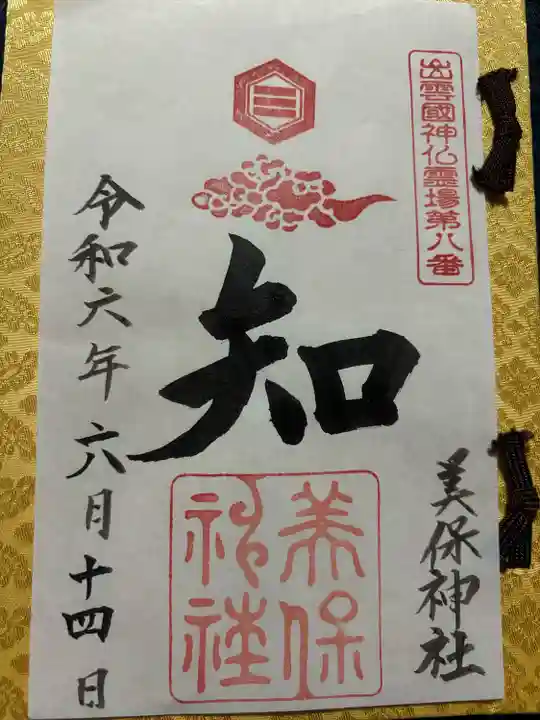 出雲國神仏霊場第八番
美保神社
知
美保
神社
令和六年六月十四日